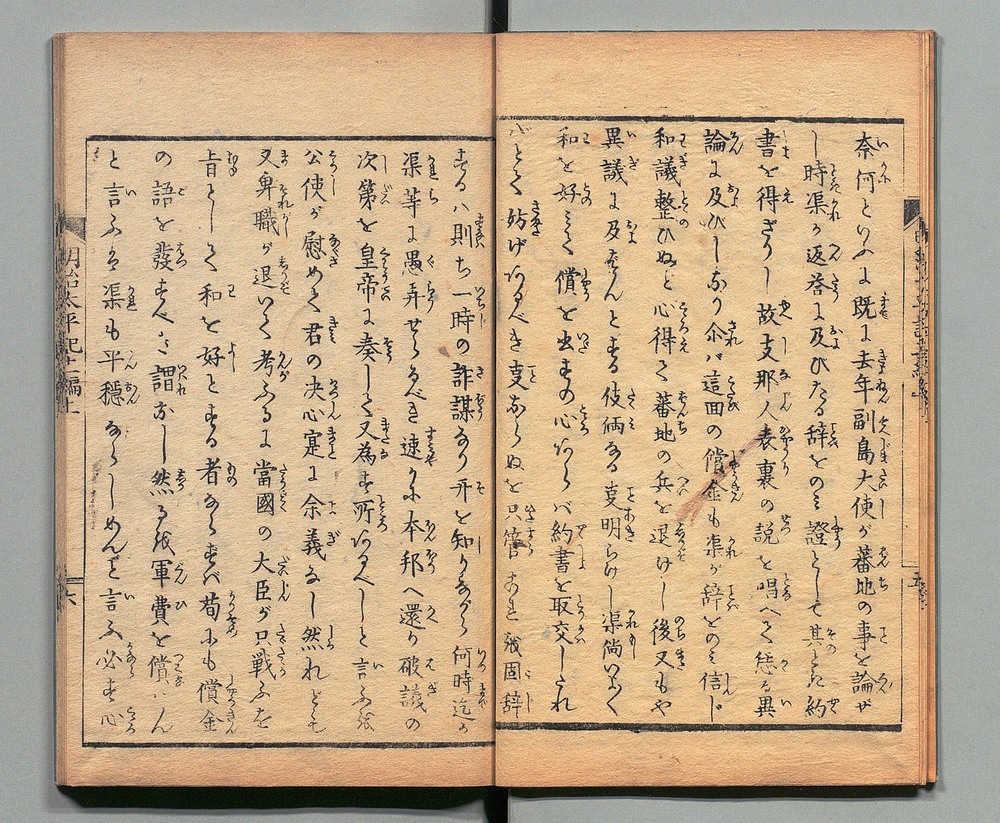 奈何といふに既に去年副島大使が蕃地の事を論ぜ
し時渠が返答に及びたる辞をのミ證として其とき約
書を得ざりし故支那人表裏の説を唱へて係る異
論に及びしなり尒バ這面の償金も渠が辞をのミ信じ
和議整ひぬと心得て蕃地の兵を退けし後又もや
異議に及ばんとする伎倆ある事明らけし渠尚いよく
和を好ミて償を出すの心あらバ約書を取交したれ
バとて妨げあるべき事ならぬを只管これを固辞
するハ則ち一時の詐謀なり夫を知りながら何時迄か
渠等に愚弄せらるべき速かに本邦へ還り破議の
次第を皇帝に奏して又為す所あるべしと言ふを
公使が慰めて君の决心寔に余義なし然れども
又卑職が退いて考ふるに當國の大臣が只戦ふを
旨として和を好とする者ならずバ苟にも償金
の語を發すべき謂なし然るを軍費を償ハん
と言ふハ渠も平穏ならしめんと言ふ必ず心
明治太平記十二編上
六